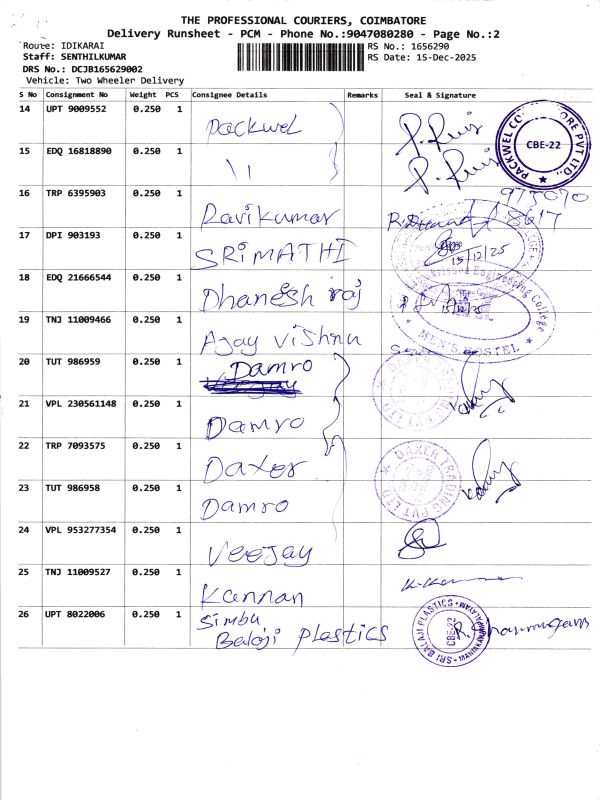 THE PROFESSIONAL COURIERS, COIMBATORE
Delivery Runsheet - PCM - Phone No.:9047080280 - Page No.:2
Route: IDIKARAI RS No.: 1656290
Staff: SENTHILKUMAR RS Date: 15-Dec-2025
DRS No.: DCJB165629002
Vehicle: Two Wheeler Delivery
S No Consignment No Weight PCS Consignee Details Remarks Seal & Signature
14 UPT 9009552 0.250 1 Packwel
PACKWEL CO PVT LTD., CBE-22
15 EDQ 16818890 0.250 1 11
16 TRP 6395903 0.250 1 Ravi Kumar 975090
8617
17 DPI 903193 0.250 1 SRIMATHI 15/12/25
18 EDQ 21666544 0.250 1 Dhanesh raj 15/12/25
Engineering College
MEN'S HOSTEL
19 TNJ 11009466 0.250 1 Ajay Vishnu
20 TUT 986959 0.250 1 Damro
21 VPL 230561148 0.250 1 Damro
22 TRP 7093575 0.250 1 Daxer
DAXER TRADING PVT LTD
23 TUT 986958 0.250 1 Damro
24 VPL 953277354 0.250 1 Veejay
25 TNJ 11009527 0.250 1 Kannan
26 UPT 8022006 0.250 1 Simbu
Baloji Plastics
SRI BALAJI PLASTICS CBE-22 R. Shanmugam